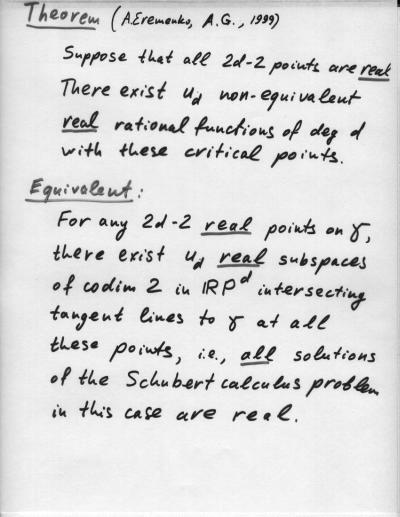 Theorem (A.Eremenko, A.G., 1999)
Suppose that all 2d-2 points are real
There exist u_d non-equivalent
real rational functions of deg d
with these critical points.
Equivalent:
For any 2d-2 real points on γ,
there exist u_d real subspaces
of codim 2 in RP^d intersecting
tangent lines to γ at all
these points, i.e., all solutions
of the Schubert calculus problem
in this case are real.